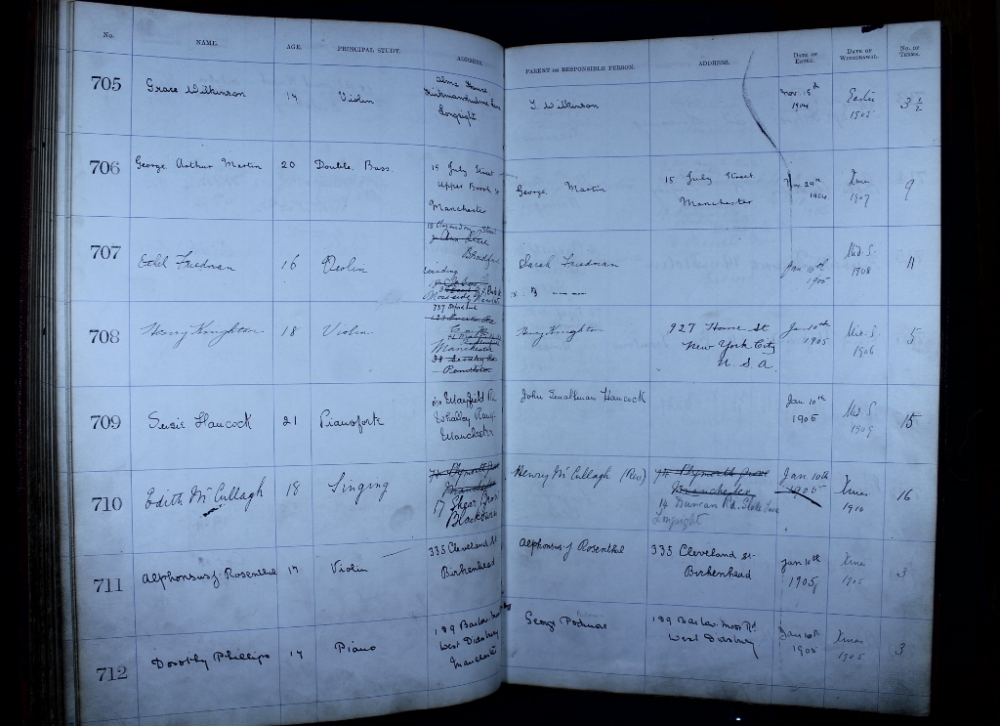 No. NAME. AGE. PRINCIPAL STUDY. ADDRESS. PARENT OR RESPONSIBLE PERSON. ADDRESS. DATE OF ENTRY. DATE OF WITHDRAWAL. No. OF TERMS.
705 Grace Wilkinson 14 Violin Longsight J. Wilkinson Nov. 15th 1904 Easter 1905 3 1/2
706 George Arthur Martin 20 Double Bass 15 July Street Upper Brook St Manchester George Martin 15 July Street Manchester 1904 Xmas 1907 9
707 Ethel Friedman 16 Violin Bradford Sarah Friedman Jan 10th 1905 Mid S. 1908 11
708 Henry Knighton 18 Violin Manchester Pendleton Knighton 927 Home St New York City U.S.A. Jan 10th 1905 Mid S. 1906 5
709 Susie Hancock 21 Pianoforte Mayfield Rd Whalley Range Manchester John Smallman Hancock Jan 10th 1905 Mid S 1909 15
710 Edith McCullagh 18 Singing 74 Plymouth Grove Manchester 17 Shear Brow Blackburn Henry McCullagh (Rev) 74 Plymouth Grove Manchester 14 Duncan Rd. Slade Lane Longsight Jan 10th 1905 Xmas 1910 16
711 Alphonsus J Rosenthal 17 Violin 335 Cleveland St Birkenhead Alphonsus J Rosenthal 335 Cleveland St Birkenhead Jan 10th 1905 Xmas 1905 3
712 Dorothy Phillips 14 Piano 189 Barlow Moor West Didsbury Manchester George Podmore 189 Barlow Moor Rd West Didsbury Jan 10th 1905 Xmas 1905 3